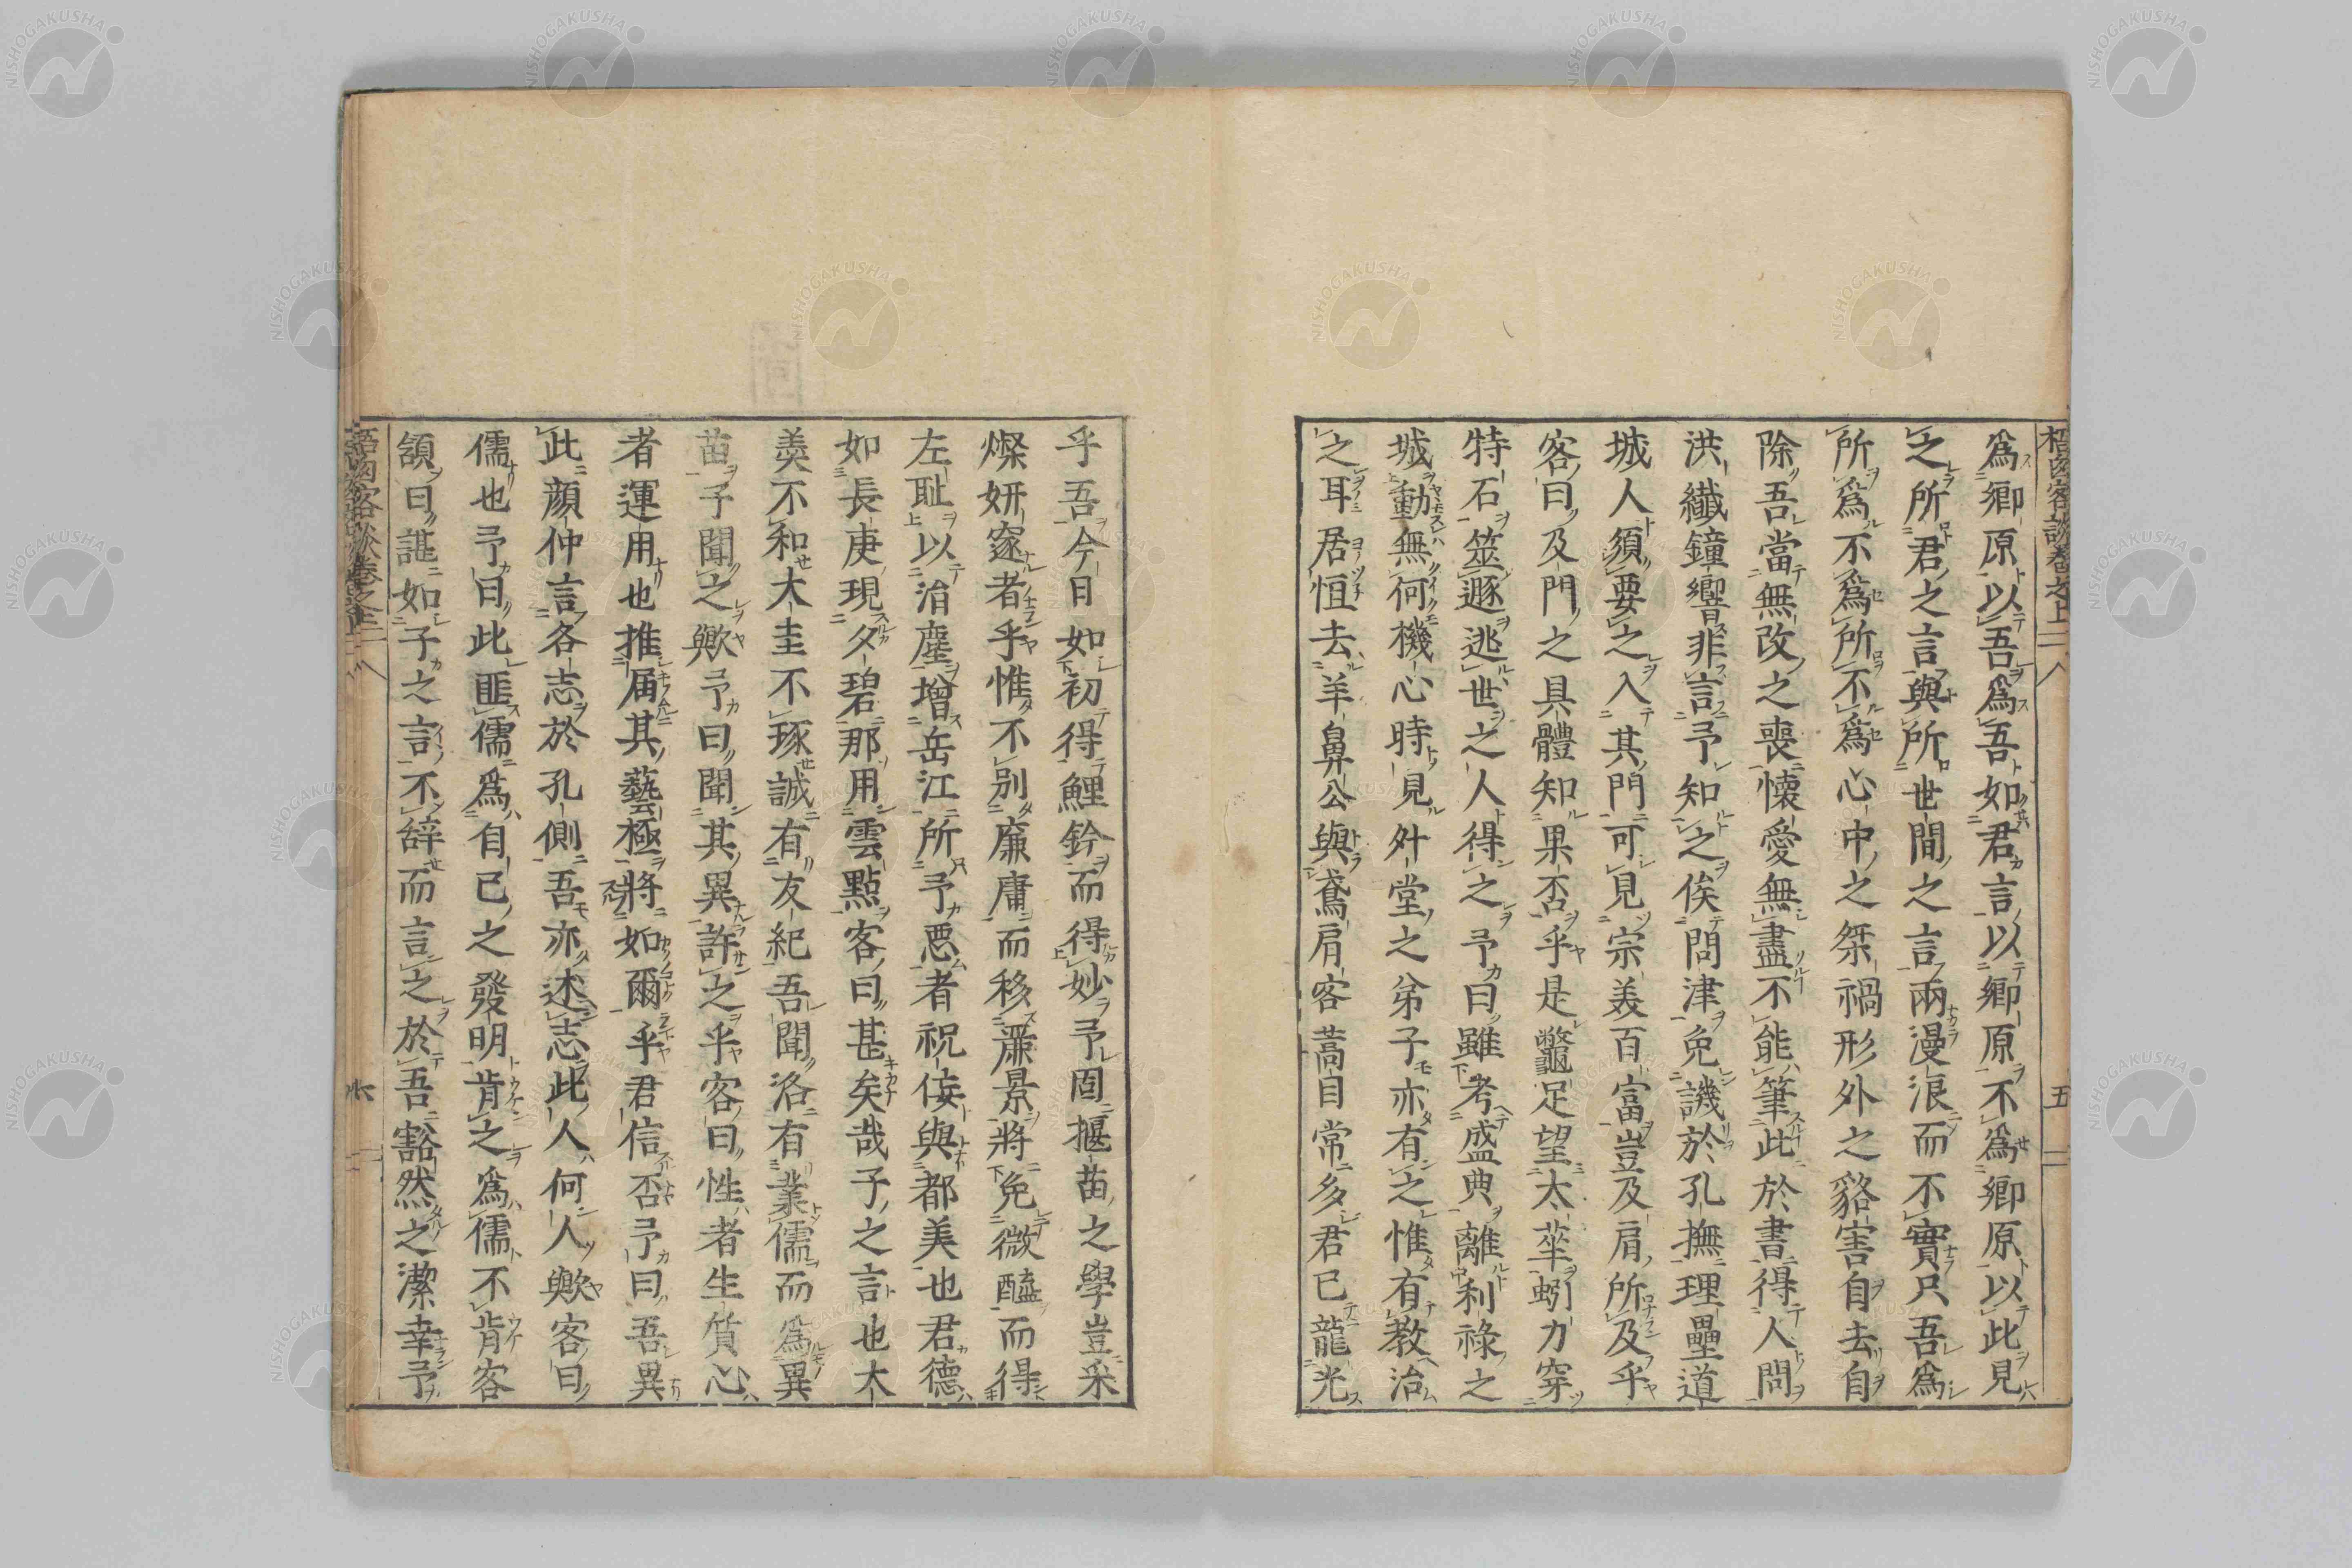 為鄉原以吾為吾如君言以鄉原不為鄉原以此見
之所君之言與所世間之言兩漫浪而不實只吾為
所為不為所不為心中之桀禍形外之貉害自去自
除吾當無改之喪懷愛無盡不能筆此於書得人問
洪纖鐘響非言予知之俟問津免譏於孔撫理壘道
城人須要之入其門可見宗美百富豈及肩所及乎
客曰及門之具體知果否乎是鼈足望太華蚓力穿
特石筮遯逃世之人得之予曰雖考盛典離利祿之
城動無何機心時見外堂之弟子亦有之惟有教治
之耳居恒去羊鼻公與鳶肩客蒿目常多君已龍光
乎吾今日如初得鯉鈴而得妙予固揠苗之學豈采
燦妍窳者乎惟不別廉庸而移藨景將免微醯而得
左耻以治塵增岳江所予惡者祝佞與都美也君德
如長庚現夕碧那用雲點客曰甚矣哉子之言也太
羹不和大圭不琢誠有友紀吾聞洛有業儒而為異
苗子聞之歟予曰聞其異許之乎客曰性者生質心
者運用也推屆其藝極將如爾乎君信否予曰吾異
此顏仲言各志於孔側吾亦述志此人何人歟客曰
儒也予曰此匪儒為自己之發明肯之為儒不肯客
頷曰諶如子之言不辭而言之於吾豁然之潔幸予
五
六
NISHOGAKUSHA